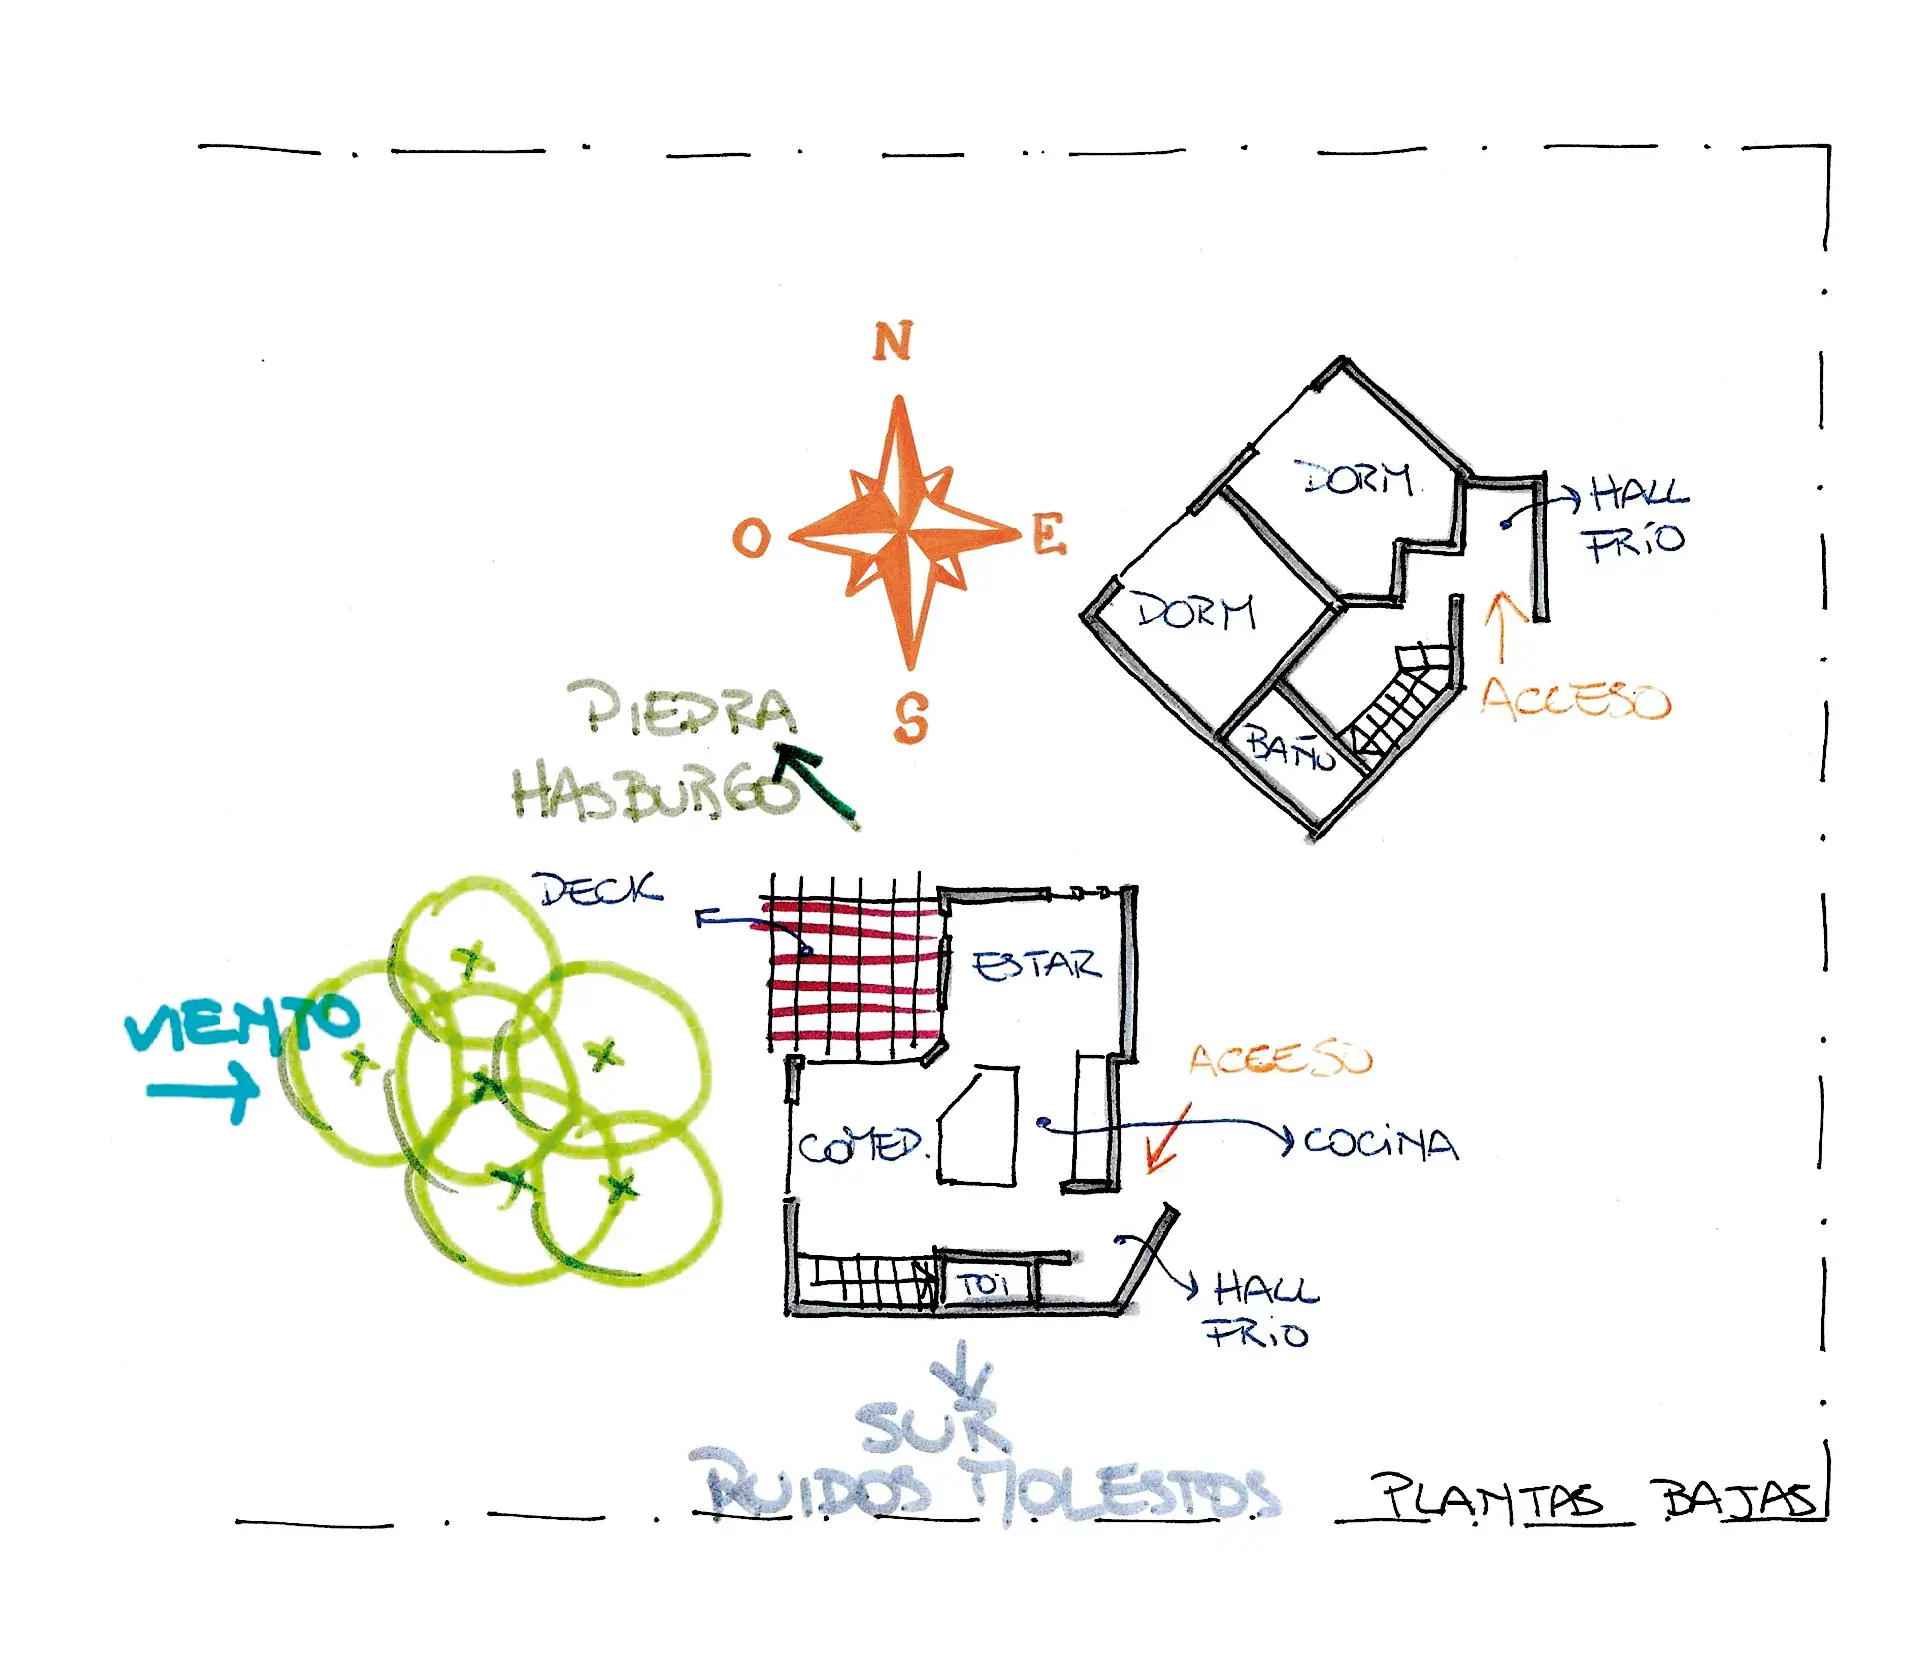 N
O
E
S
DORM.
HALL
FRÍO
DORM
ACCESO
BAÑO
PIEDRA
HASBURGO
DECK
ESTAR
VIENTO
ACCESO
COMED.
COCINA
TOI
HALL
FRIO
SUR
RUIDOS MOLESTOS
PLANTAS BAJAS